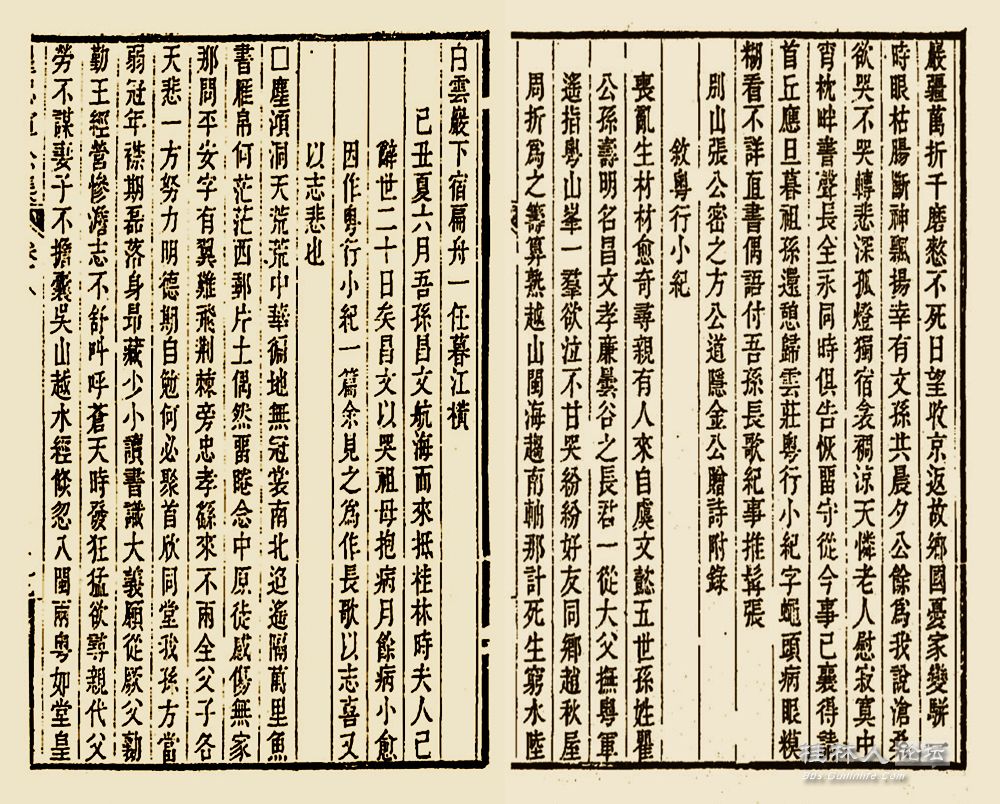 嚴疆萬折千磨愁不死日望收京返故鄉國憂家變駢
時眼枯腸斷神飄揚幸有文孫共晨夕公餘爲我說滄桑
欲哭不哭轉悲深孤燈獨宿衾裯涼天憐老人慰寂寞中
宵枕畔書聲長全永同時俱告恢留守從今事已襄得請
首丘應旦暮祖孫還憩歸雲莊粵行小紀字蠅頭病眼模
糊看不詳直書偶語付吾孫長歌紀事推髯張
別山張公密之方公道隱金公贈詩附錄
敘粵行小紀
喪亂生材材愈奇尋親有人來自虞文懿五世孫姓瞿
公孫壽明名昌文孝廉曇谷之長君一從大父撫粵軍
遙指粵山峯一羣欲泣不甘哭紛紛好友同鄉趙秋屋
周折爲之籌算熟越山閩海趨南輈那計死生窮水陸
白雲巖下宿扁舟一任暮江橫
己丑夏六月吾孫昌文航海而來抵桂林時夫人已
辭世二十日矣昌文以哭祖母抱病月餘病小愈
因作粵行小紀一篇余見之爲作長歌以志喜又
以志悲也
□塵澒洞天荒荒中華徧地無冠裳南北迢遙隔萬里魚
書雁帛何茫茫西郵片土偶然留睠念中原徒感傷無家
那問平安字有翼難飛荆棘旁忠孝繇來不兩全父子各
天悲一方努力明德期自勉何必聚首欣同堂我孫方當
弱冠年襟期磊落身昂藏少小讀書識大義願從厥父勷
勤王經營慘澹志不舒叫呼蒼天時發狂猛欲尋親代父
勞不謀妻子不擔囊吳山越水經倏忽入閩兩粵如堂皇
桂林人论坛
bbs.Guilinlife.Com